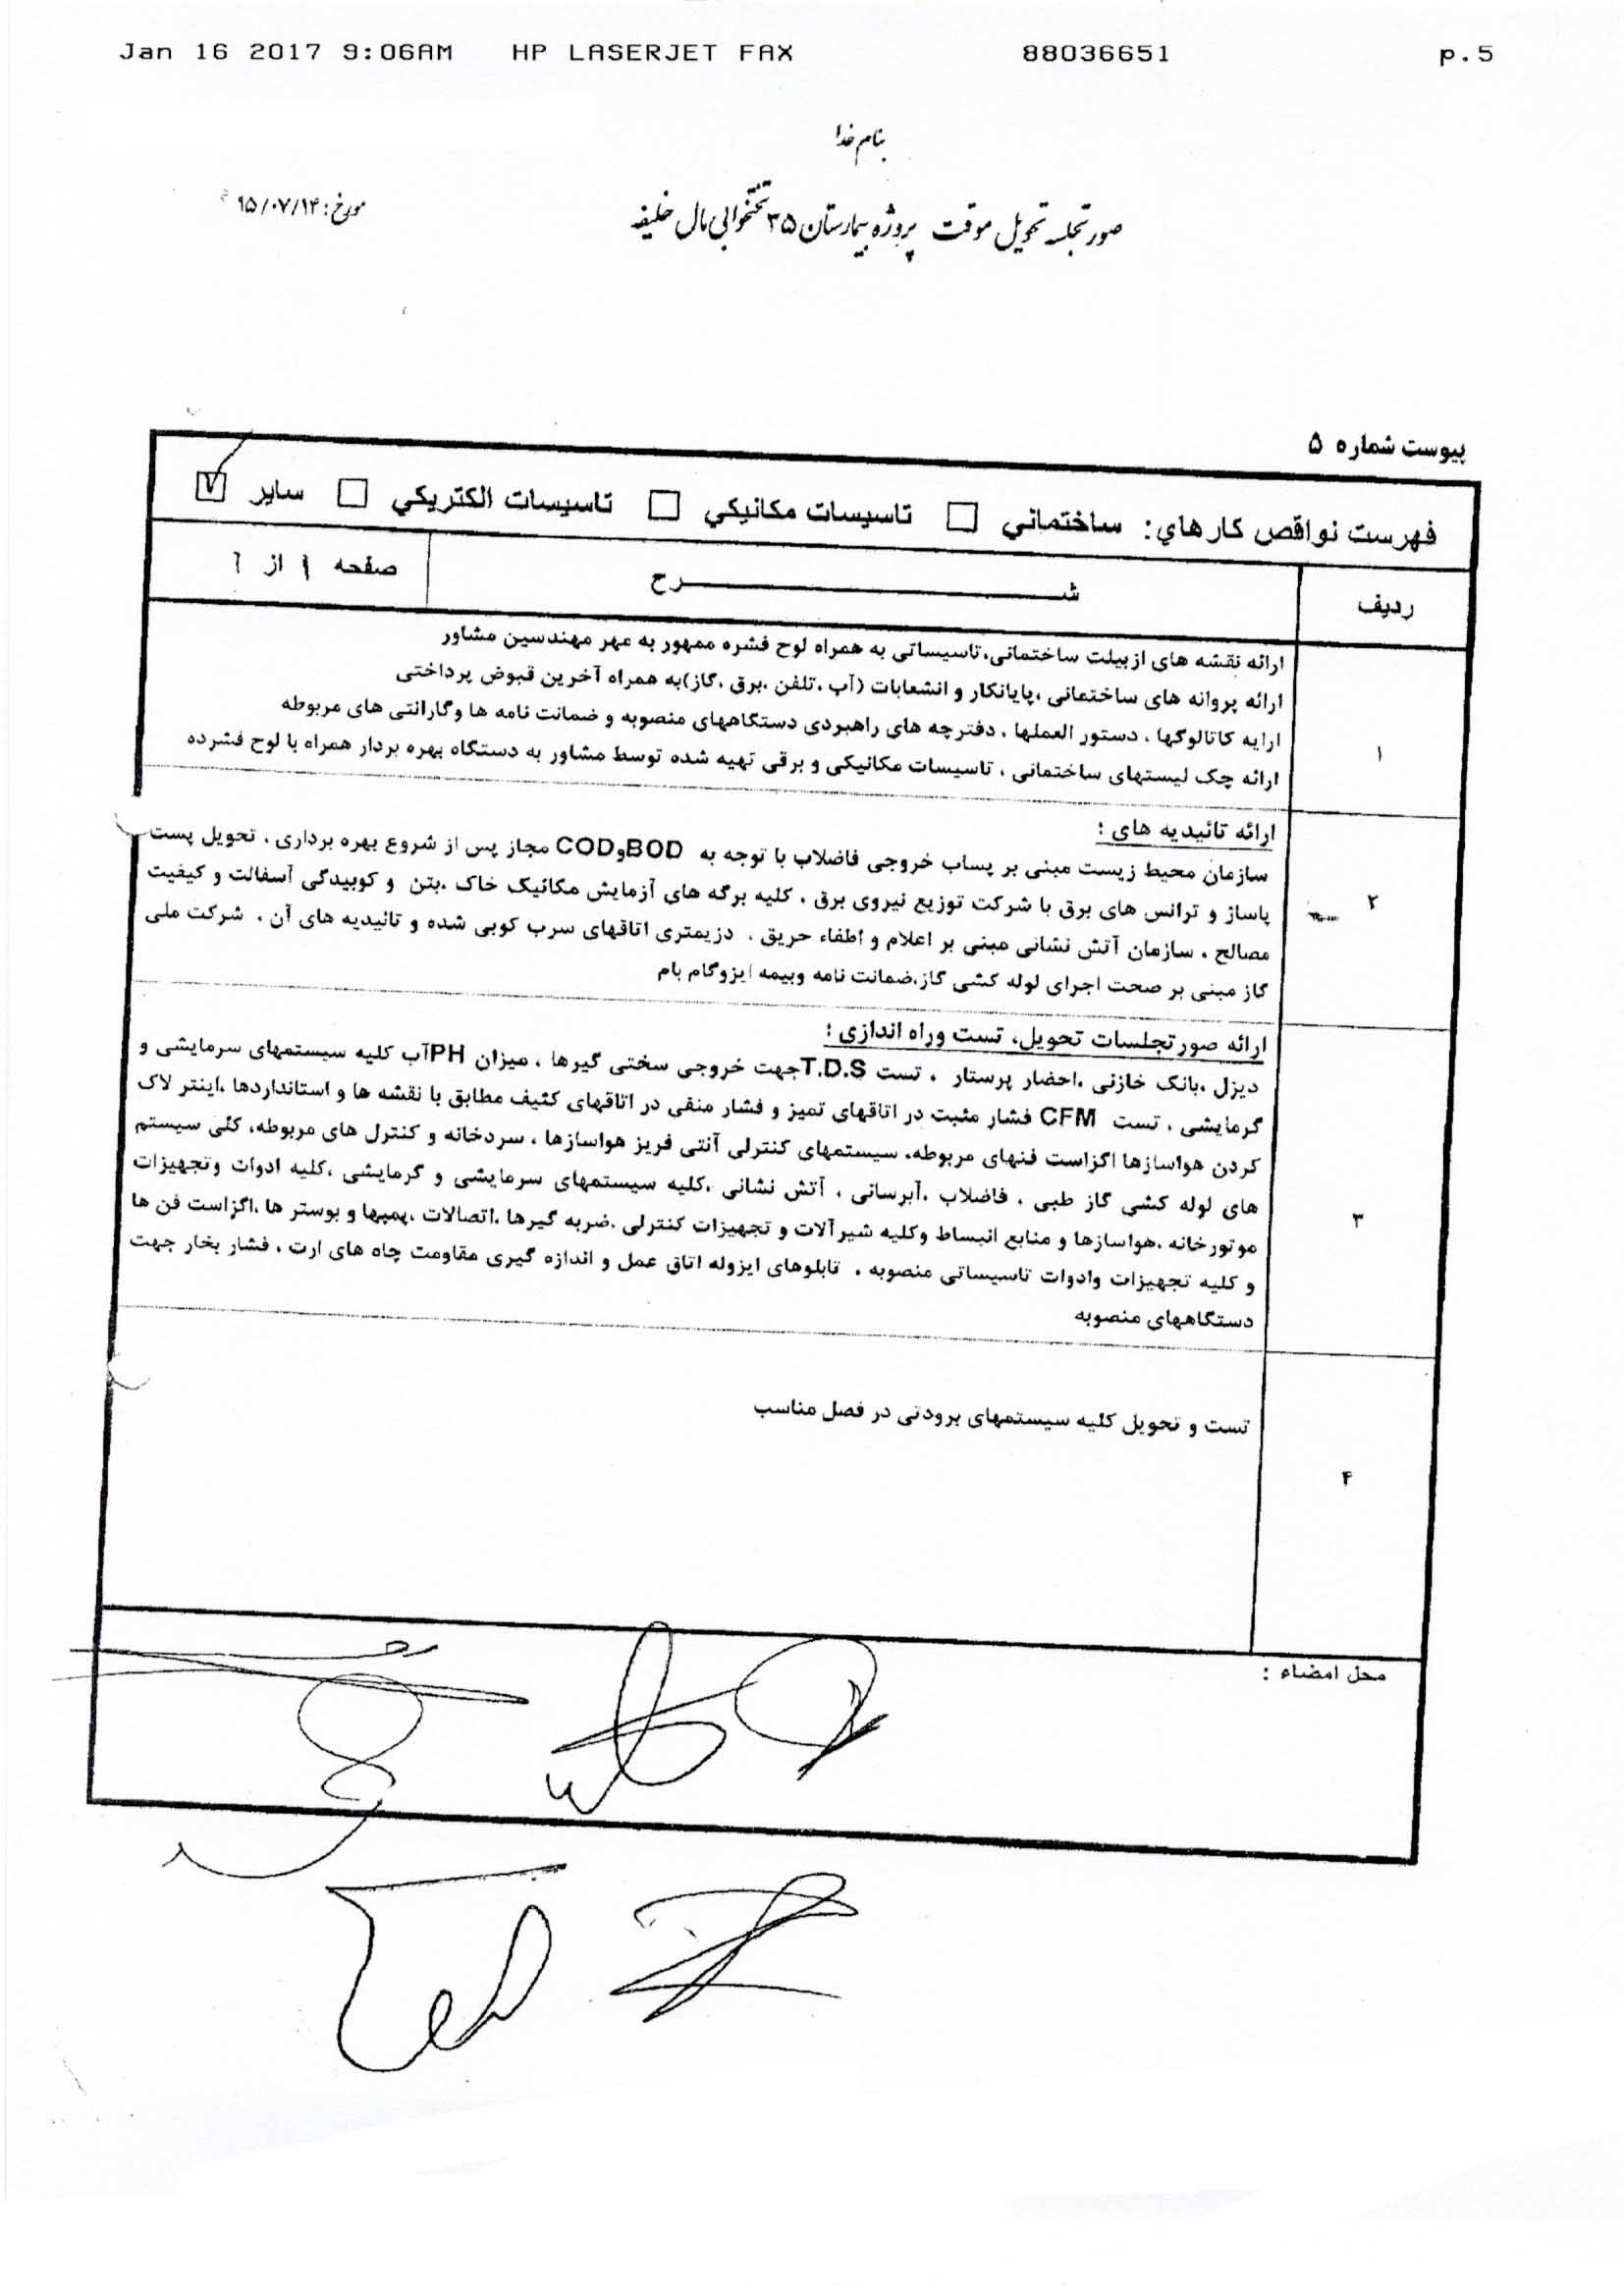 Jan 16 2017 9:06AM HP LASERJET FAX 88036651 p.5
بنام خدا
صورتجلسه تحویل موقت پروژه بیمارستان ۳۵ تختخوابی مال خلیفه
مورخ: ۹۵/۰۷/۱۴
پیوست شماره ۵
فهرست نواقص کارهاي: ساختماني □ تاسیسات مکانیکي □ تاسیسات الکتریکي □ سایر ☑
ردیف شــــــرح صفحه ۱ از ۱
ارائه نقشه های ازبیلت ساختمانی،تاسیساتی به همراه لوح فشره ممهور به مهر مهندسین مشاور
ارائه پروانه های ساختمانی ،پایانکار و انشعابات (آب ،تلفن ،برق ،گاز)به همراه آخرین قبوض پرداختی
ارایه کاتالوگها ، دستور العملها ، دفترچه های راهبردی دستگاههای منصوبه و ضمانت نامه ها وگارانتی های مربوطه
۱
ارائه چک لیستهای ساختمانی ، تاسیسات مکانیکی و برقی تهیه شده توسط مشاور به دستگاه بهره بردار همراه با لوح فشرده
ارائه تائیدیه های :
سازمان محیط زیست مبنی بر پساب خروجی فاضلاب با توجه به BODوCOD مجاز پس از شروع بهره برداری ، تحویل پست
۲
پاساژ و ترانس های برق با شرکت توزیع نیروی برق ، کلیه برگه های آزمایش مکانیک خاک ،بتن و کوبیدگی آسفالت و کیفیت
مصالح ، سازمان آتش نشانی مبنی بر اعلام و اطفاء حریق ، دزیمتری اتاقهای سرب کوبی شده و تائیدیه های آن ، شرکت ملی
گاز مبنی بر صحت اجرای لوله کشی گاز،ضمانت نامه وبیمه ایزوگام بام
ارائه صورتجلسات تحویل، تست وراه اندازی :
دیزل ،بانک خازنی ،احضار پرستار ، تست T.D.Sجهت خروجی سختی گیرها ، میزان PHآب کلیه سیستمهای سرمایشی و
گرمایشی ، تست CFM فشار مثبت در اتاقهای تمیز و فشار منفی در اتاقهای کثیف مطابق با نقشه ها و استانداردها ،اینتر لاک
کردن هواسازها اگزاست فنهای مربوطه، سیستمهای کنترلی آنتی فریز هواسازها ، سردخانه و کنترل های مربوطه، کلی سیستم
های لوله کشی گاز طبی ، فاضلاب ،آبرسانی ، آتش نشانی ،کلیه سیستمهای سرمایشی و گرمایشی ،کلیه ادوات وتجهیزات
۳
موتورخانه ،هواسازها و منابع انبساط وکلیه شیرآلات و تجهیزات کنترلی ،ضربه گیرها ،اتصالات ،پمپها و بوستر ها ،اگزاست فن ها
و کلیه تجهیزات وادوات تاسیساتی منصوبه ، تابلوهای ایزوله اتاق عمل و اندازه گیری مقاومت چاه های ارت ، فشار بخار جهت
دستگاههای منصوبه
تست و تحویل کلیه سیستمهای برودتی در فصل مناسب
۴
محل امضاء :